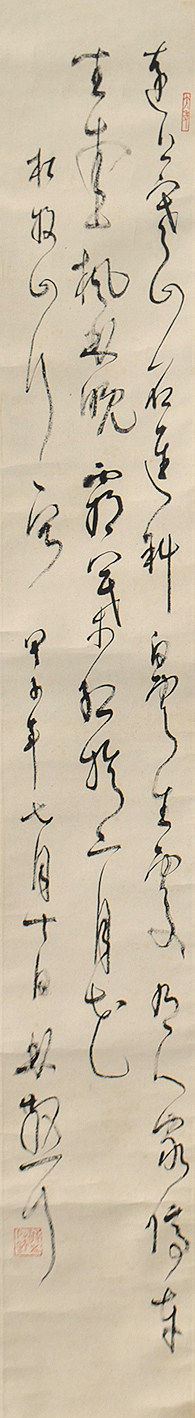 遠上寒山石逕斜白雲生處有人家停車
坐愛楓林晚霜葉紅於二月花
杜牧山行 甲子年七月十日林散